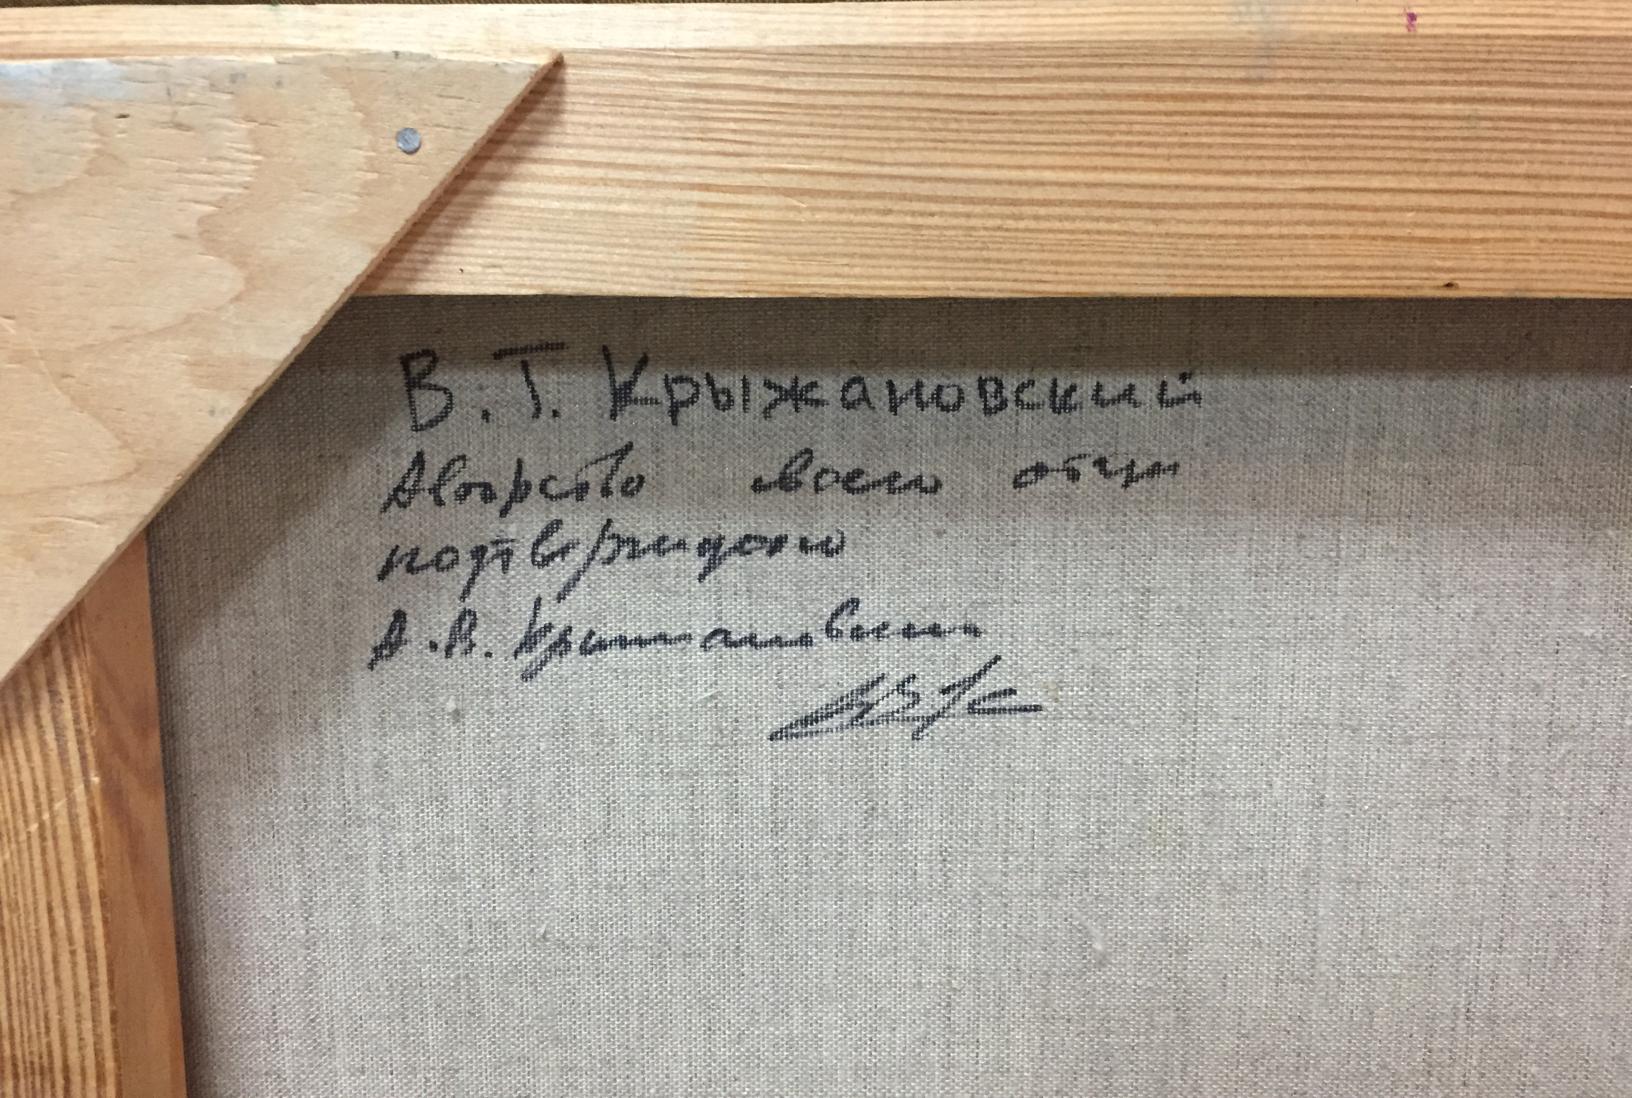 В. Т. Крыжановский
Авторство своего отца
подтверждаю
А. В. Крыжановский